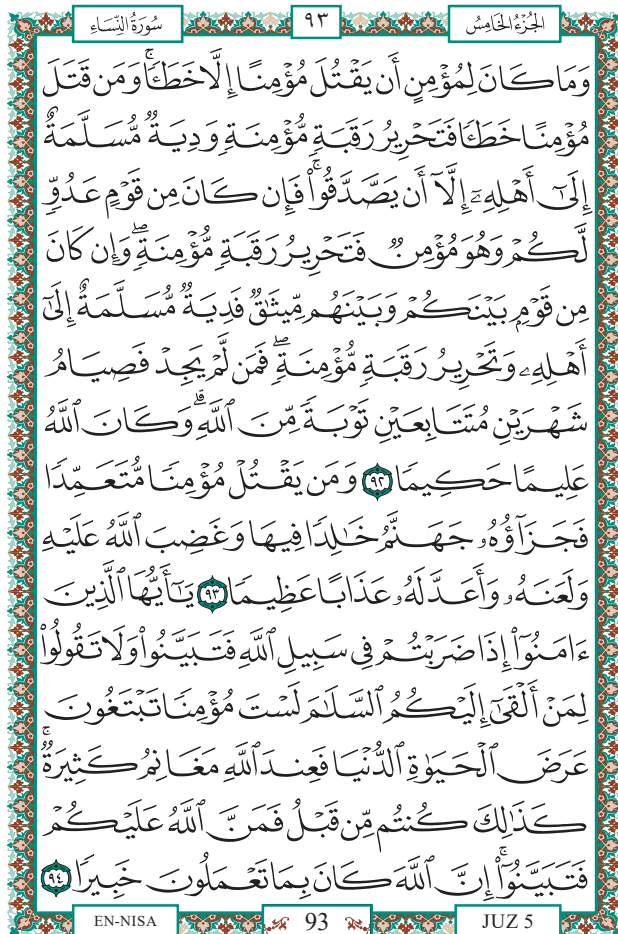 الجُزْءُ الخَامِسُ ٩٣ سُورَةُ النِّسَاءِ
وَمَا كَانَ لِمُؤْمِنٍ أَن يَقْتُلَ مُؤْمِنًا إِلَّا خَطَـًٔا ۚ وَمَن قَتَلَ
مُؤْمِنًا خَطَـًٔا فَتَحْرِيرُ رَقَبَةٍ مُّؤْمِنَةٍ وَدِيَةٌ مُّسَلَّمَةٌ
إِلَىٰٓ أَهْلِهِۦٓ إِلَّآ أَن يَصَّدَّقُوا۟ ۚ فَإِن كَانَ مِن قَوْمٍ عَدُوٍّ
لَّكُمْ وَهُوَ مُؤْمِنٌ فَتَحْرِيرُ رَقَبَةٍ مُّؤْمِنَةٍ ۖ وَإِن كَانَ
مِن قَوْمٍۭ بَيْنَكُمْ وَبَيْنَهُم مِّيثَـٰقٌ فَدِيَةٌ مُّسَلَّمَةٌ إِلَىٰٓ
أَهْلِهِۦ وَتَحْرِيرُ رَقَبَةٍ مُّؤْمِنَةٍ ۖ فَمَن لَّمْ يَجِدْ فَصِيَامُ
شَهْرَيْنِ مُتَتَابِعَيْنِ تَوْبَةً مِّنَ ٱللَّهِ ۗ وَكَانَ ٱللَّهُ
عَلِيمًا حَكِيمًا ٩٢ وَمَن يَقْتُلْ مُؤْمِنًا مُّتَعَمِّدًا
فَجَزَآؤُهُۥ جَهَنَّمُ خَـٰلِدًا فِيهَا وَغَضِبَ ٱللَّهُ عَلَيْهِ
وَلَعَنَهُۥ وَأَعَدَّ لَهُۥ عَذَابًا عَظِيمًا ٩٣ يَـٰٓأَيُّهَا ٱلَّذِينَ
ءَامَنُوٓا۟ إِذَا ضَرَبْتُمْ فِى سَبِيلِ ٱللَّهِ فَتَبَيَّنُوا۟ وَلَا تَقُولُوا۟
لِمَنْ أَلْقَىٰٓ إِلَيْكُمُ ٱلسَّلَـٰمَ لَسْتَ مُؤْمِنًا تَبْتَغُونَ
عَرَضَ ٱلْحَيَوٰةِ ٱلدُّنْيَا فَعِندَ ٱللَّهِ مَغَانِمُ كَثِيرَةٌ ۚ
كَذَٰلِكَ كُنتُم مِّن قَبْلُ فَمَنَّ ٱللَّهُ عَلَيْكُمْ
فَتَبَيَّنُوٓا۟ ۚ إِنَّ ٱللَّهَ كَانَ بِمَا تَعْمَلُونَ خَبِيرًا ٩٤
EN-NISA 93 JUZ 5